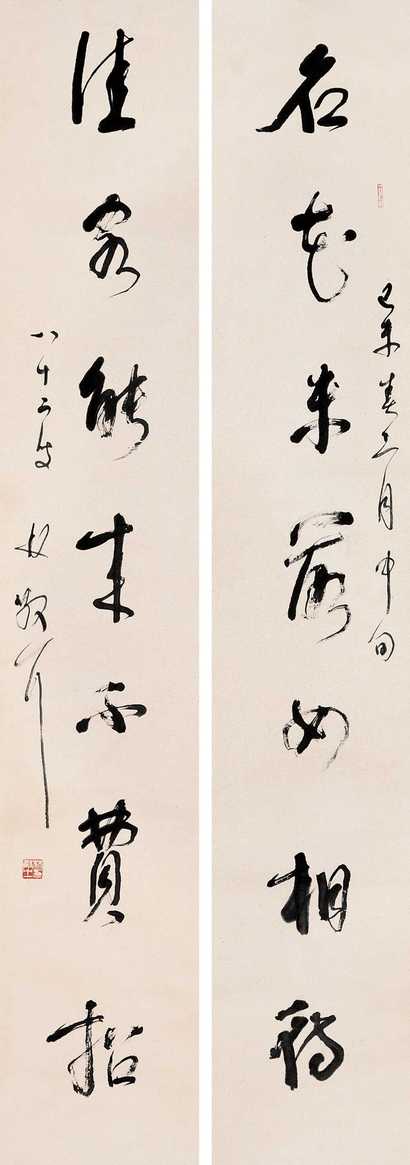 己未春三月中旬
名花未落如相待
佳客能來不費招
八十二叟林散耳